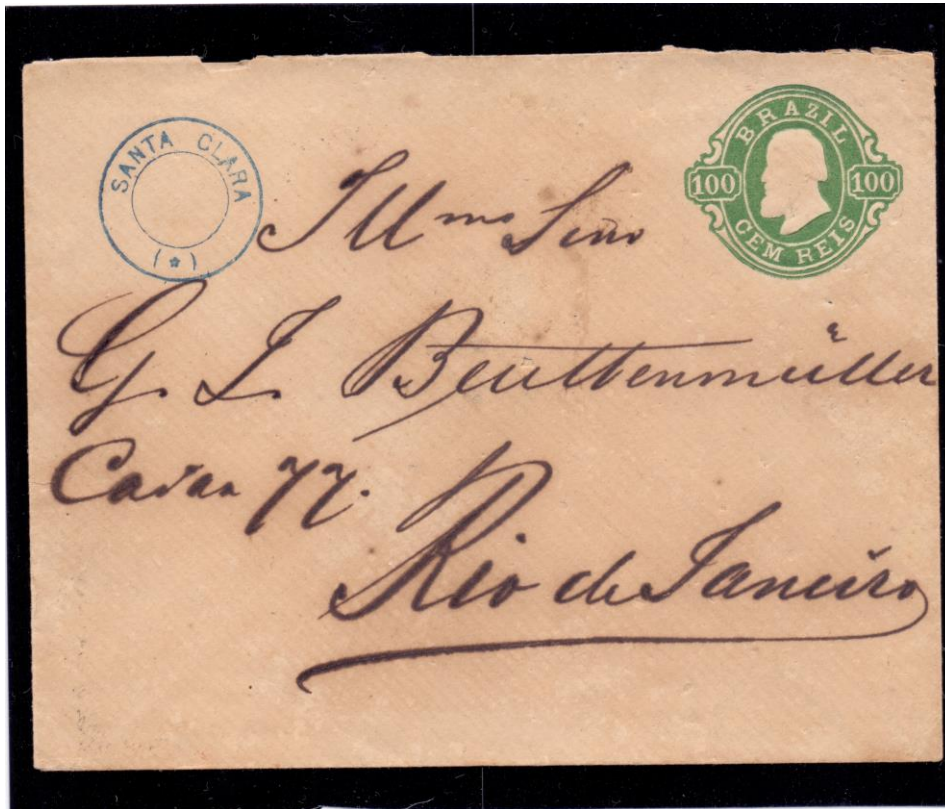 SANTA CLARA
(*)
BRAZIL
100 100
CEM REIS
Illmo Senr
G. I. Beuttenmüller
Caixa 77.
Rio de Janeiro